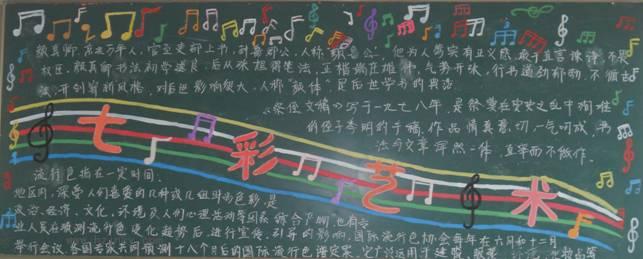 颜真卿,京兆万年人,官至吏部上书,封鲁郡公,人称"颜鲁公"。他为人笃实有正义感,敢于直言谏诤,不畏
权臣。颜真卿书法初学褚良,后从张旭得笔法,正楷端庄雄伟,气势开张,行书遒劲郁勃,不循古
法,开创写新风格,对后世影响很大,人称"颜体",是后世学书的典范
《祭侄文稿》写于一九七八年,是祭奠在安史之乱中殉难
的侄子季明的手稿,作品情真意切,一气呵成,书
法与文章浑然一体,直率而不做作。
七彩艺术
流行色指在一定时间、
地区内,深受人们喜爱的几种或几组时尚色彩,是
政治、经济、文化、环境及人们心理活动等因素综合产物,也有专
业人员在预测流行色变化趋势后,进行宣传,引导的影响。国际流行色协会每年在六月和十二月
举行会议,各国专家共同预测十八个月后的国际流行色谱定案,它广泛运用于建设,服装,